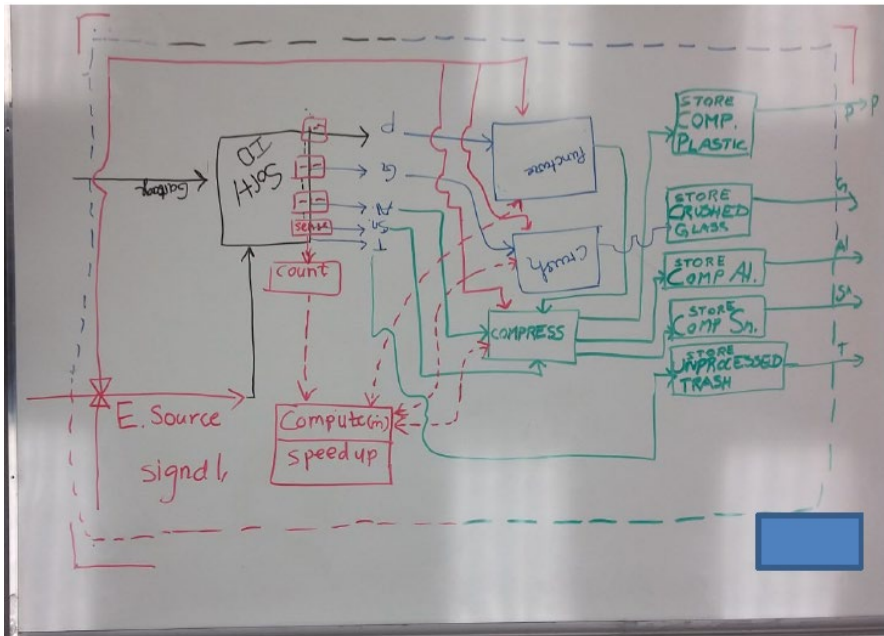 Garbage
ID
Sort
P
G
Al
Sn
T
sense
count
Puncture
Crush
COMPRESS
STORE
COMP.
PLASTIC
STORE
CRUSHED
GLASS
STORE
COMP Al.
STORE
COMP Sn.
STORE
UNPROCESSED
TRASH
P
G
Al
Sn
T
E. Source
signal
Compute(ṁ)
speed up